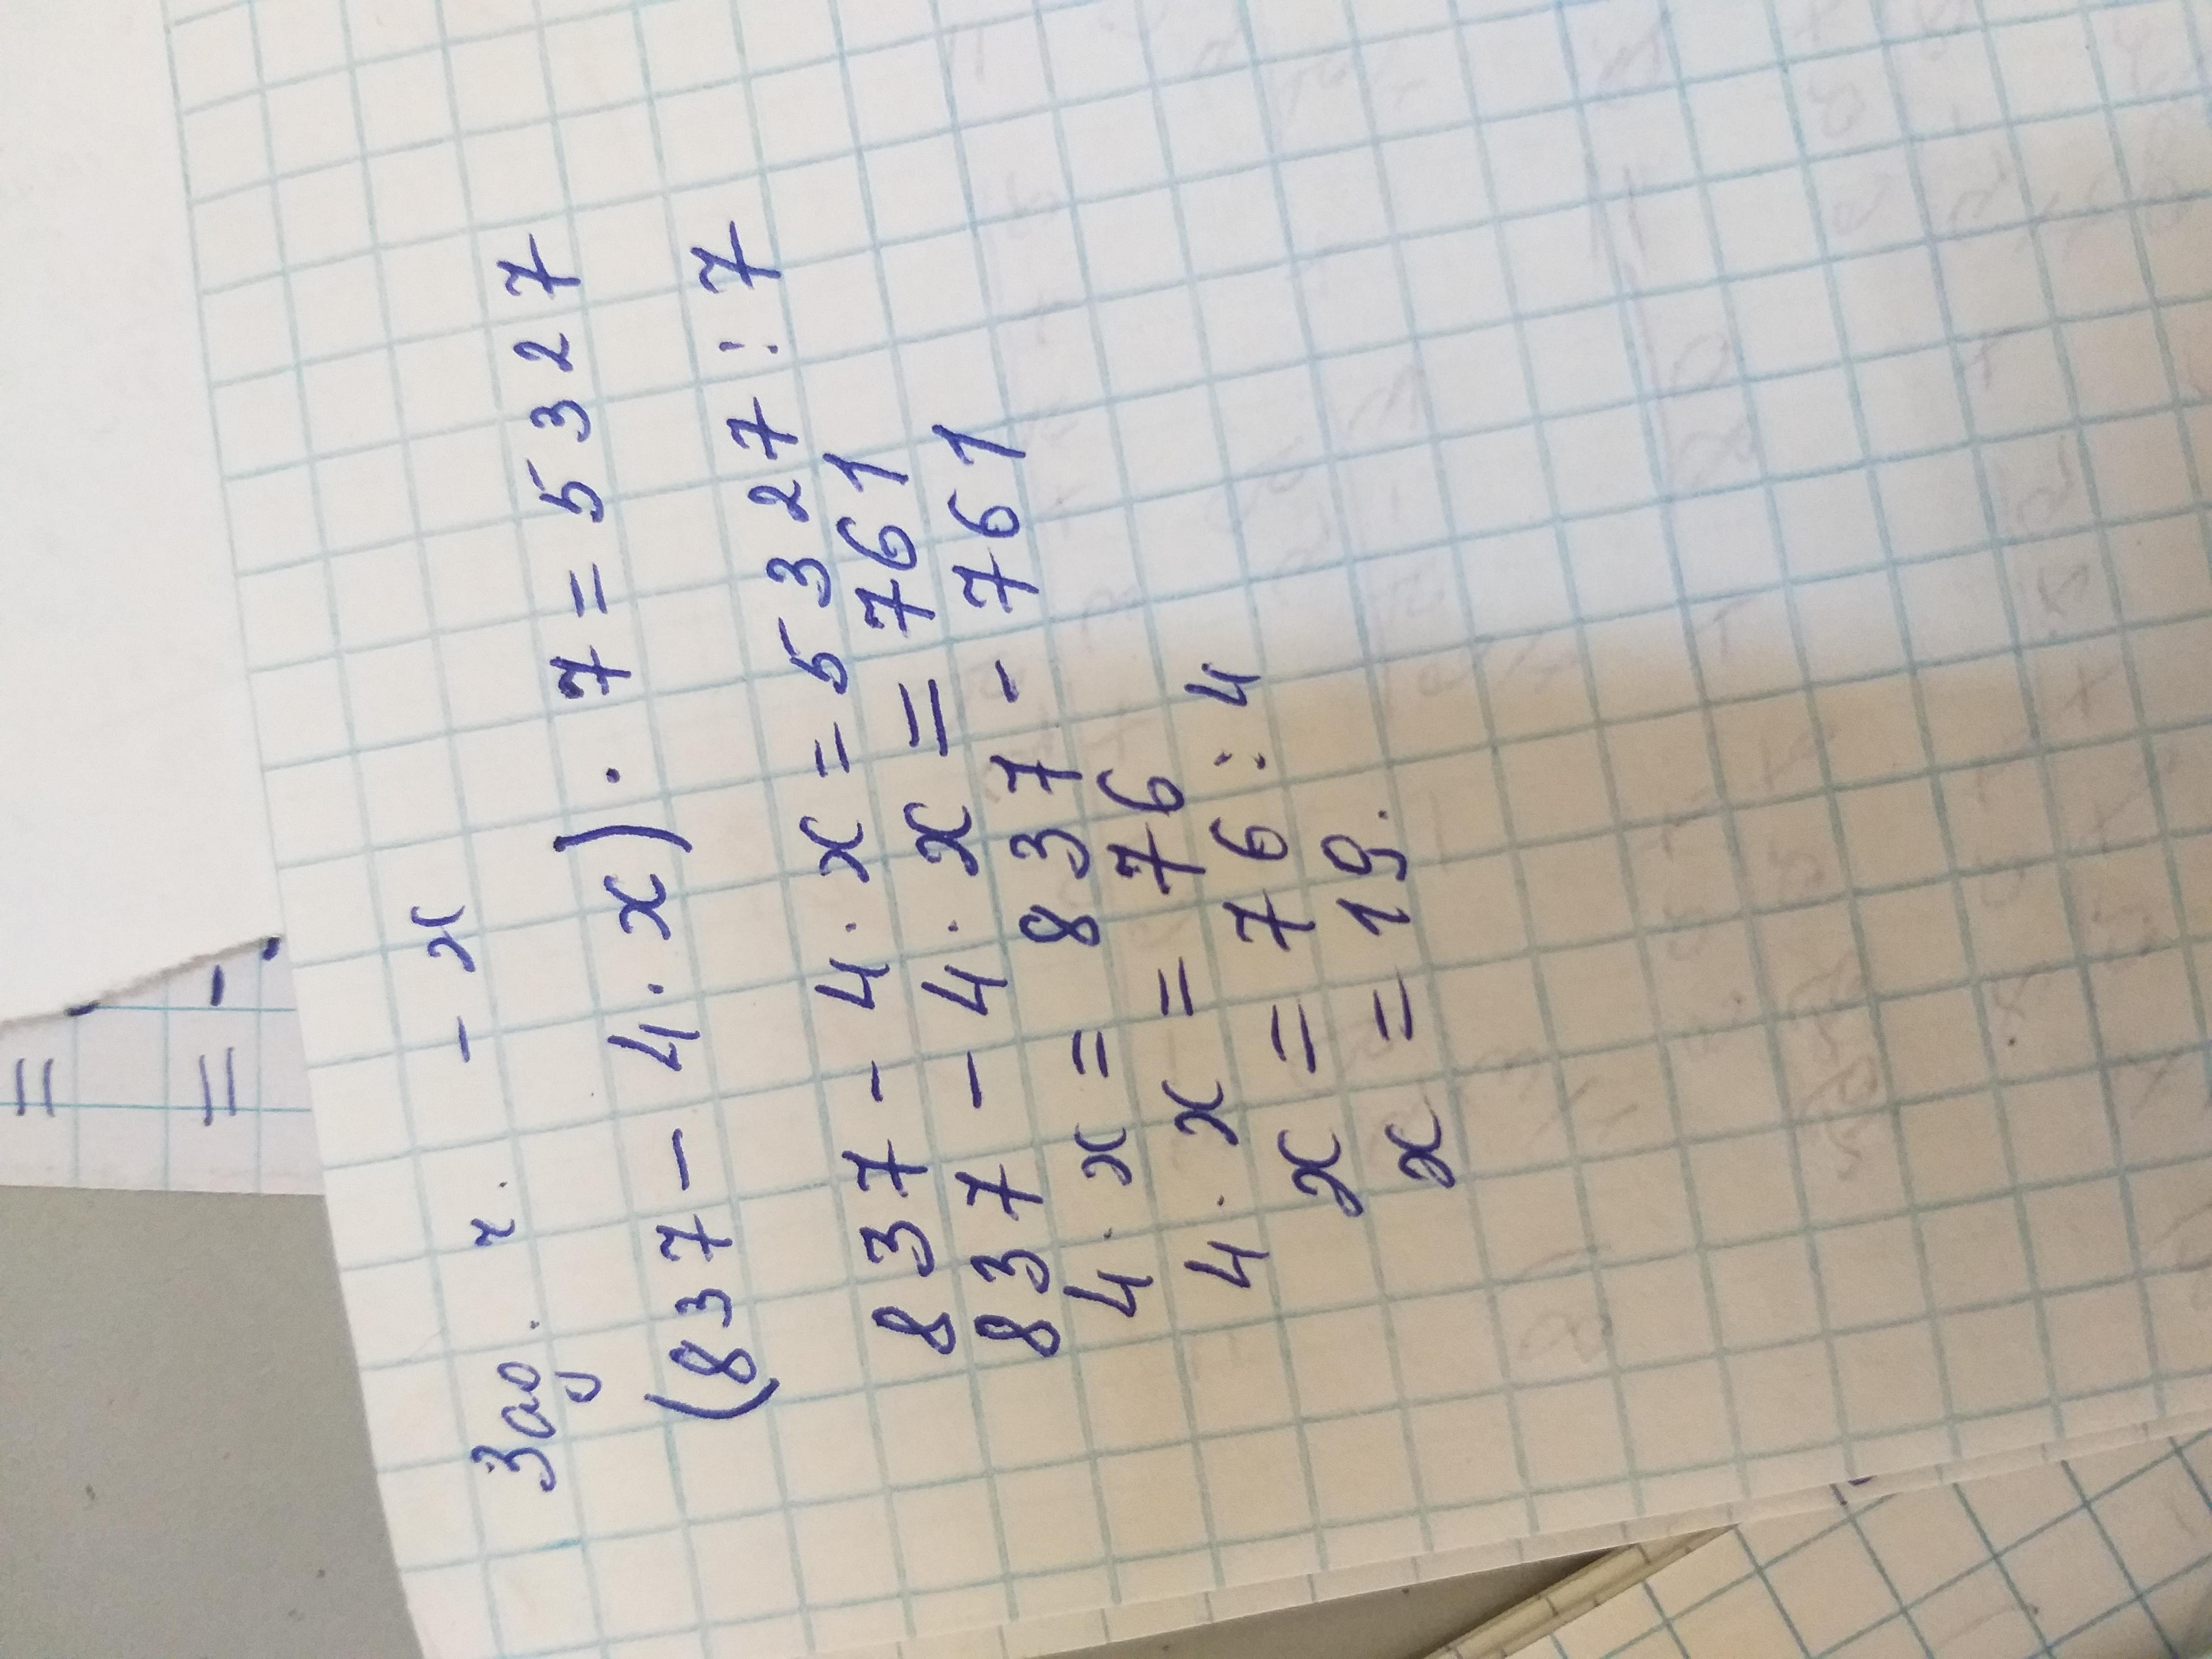 Зад. ч. - х
(837 - 4 · х) · 7 = 5327
837 - 4 · х = 5327 : 7
837 - 4 · х = 761
4 · х = 837 - 761
4 · х = 76
х = 76 : 4
х = 19.